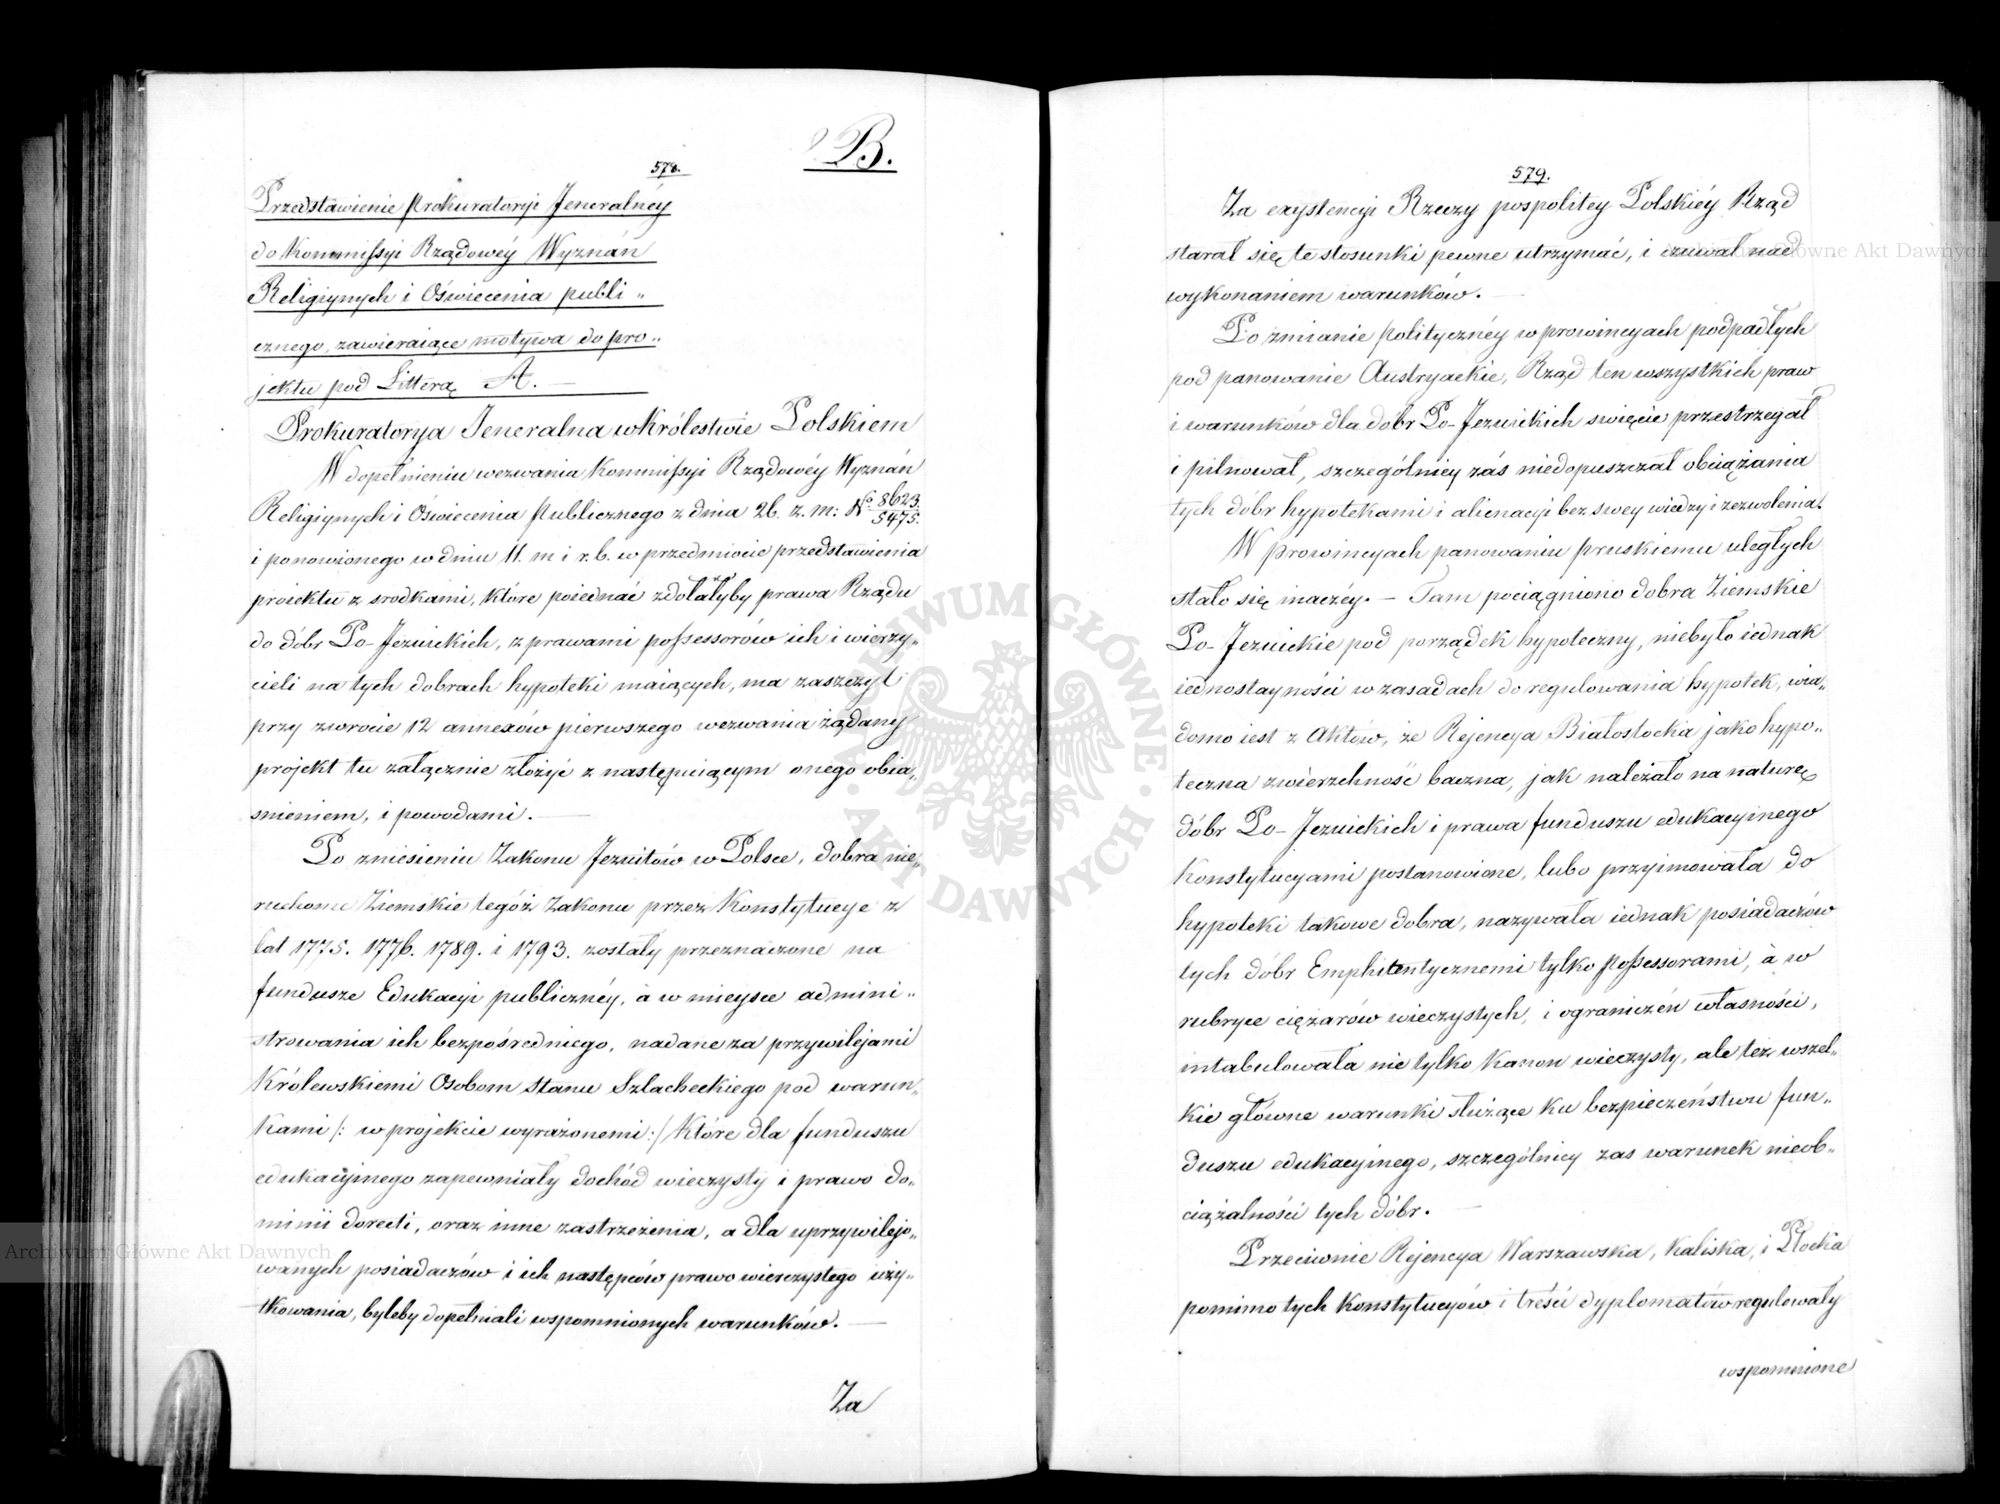 578.
B.
Przedstawienie Prokuratoryi Jeneralnéy
do Kommissyi Rządowéy Wyznań
Religiynych i Oświecenia publi„
cznego, zawieraiące motywa do pro„
jektu pod Litterą A. —
Prokuratorya Jeneralna w Królestwie Polskiem
W dopełnieniu wezwania Kommissyi Rządowéy Wyznań
Religiynych i Oświecenia Publicznego z dnia 26. z. m: No 8623/5475.
i ponowionego w dniu 11. m i r. b. w przedmiocie przedstawienia
proiektu z srodkami, które poiednać zdołałyby prawa Rządu
do dóbr Po-Jezuickich, z prawami possessorów ich i wierzy„
cieli na tych dobrach hypoteki maiących, ma zaszczyt
przy zwrocie 12 annexów pierwszego wezwania żądany
projekt tu załącznie złożyć z następuiącym onego obia„
snieniem, i powodami. —
Po zniesieniu Zakonu Jezuitów w Polsce, dobra nie„
ruchome Ziemskie tegóż Zakonu przez Konstytucye z
lat 1775. 1776. 1789. i 1793. zostały przeznaczone na
fundusze Edukacyi publicznéy, à w mieysce admini„
strowania ich bezpóśredniego, nadane za przywilejami
Królewskiemi Osobom stanu Szlacheckiego pod warun„
kami /: w projekcie wyrażonemi :/ które dla funduszu
edukacyinego zapewniały dochód wieczysty i prawo do„
minii directi, oraz inne zastrzeżenia, a dla uprzywilejo„
wanych posiadaczów i ich następców prawo wieczystego uży„
tkowania, byleby dopełniali wspomnionych warunków. —
Za
579.
Za exystencyi Rzeczy pospolitey Polskiéy Rząd
starał się te stosunki pewne utrzymać, i czuwał nad
wykonaniem warunków. —
Po zmianie Polityczney w prowincyach podpadłych
pod panowanie Austryackie, Rząd ten wszystkich praw
i warunków dla dóbr Po-Jezuickich swięcie przestrzegał
i pilnował, szczególniey zás niedopuszczał obciążania
tych dóbr hypotekami i alienacyi bez swey wiedzy i zezwolenia.
W Prowincyach panowaniu pruskiemu uległych
stało się inaczéy. — Tam pociągniono dobra Ziemskie
Po-Jezuickie pod porządek hypoteczny, niebyło iednak
iednostayności w zasadach do regulowania hypotek, wia„
domo iest z Aktów, że Rejencya Białostocka jako hypo„
teczna zwierzchność baczna, jak należało na naturę
dóbr Po-Jezuickich i prawa funduszu edukacyinego
Konstytucyami postanowione, lubo przyimowała do
hypoteki takowe dobra, nazywała iednak posiadaczów
tych dóbr Emphiteutycznemi tylko Possessorami, à w
rubryce ciężarów wieczystych, i ograniczéń własności,
intabulowała nie tylko Kanon wieczysty, ale też wszel„
kie główne warunki służące ku bezpieczeństwu fun„
duszu edukacyinego, szczególniey zas warunek nieob„
ciążalności tych dóbr. —
Przeciwnie Rejencya Warszawska, Kaliska, i Płocka
pomimo tych Konstytucyów i treści dyplomatów regulowały
wspomnione
ARCHIWUM GŁÓWNE AKT DAWNYCH
Archiwum Główne Akt Dawnych
Archiwum Główne Akt Dawnych